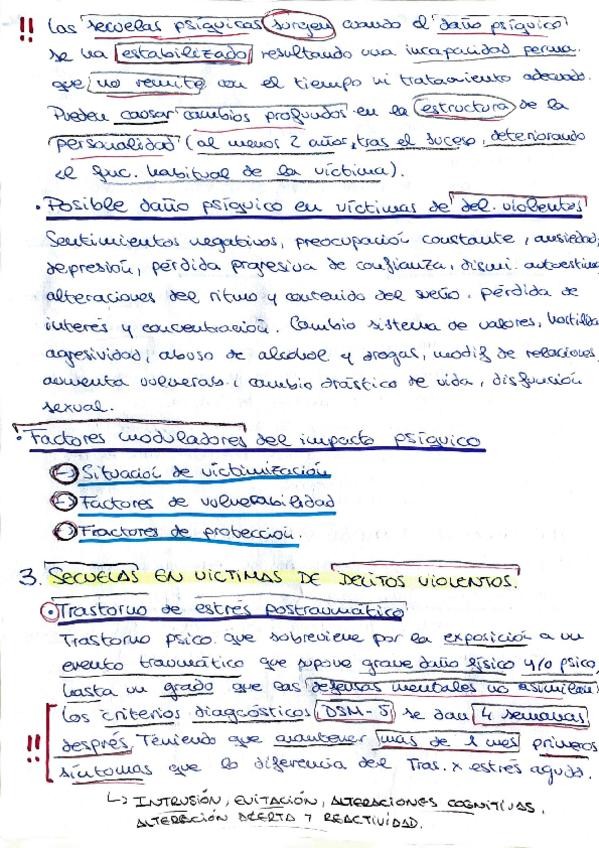 !! Las secuelas psíquicas surgen cuando el daño psíquico
se ha estabilizado resultando una incapacidad perma.
que no remite con el tiempo ni tratamiento adecuado.
Pueden causar cambios profundos en la estructura de la
personalidad (al menos 2 años, tras el suceso, deteriorando
el func. habitual de la víctima).
· Posible daño psíquico en víctimas de del. violentos
Sentimientos negativos, preocupación constante, ansiedad,
depresión, pérdida progresiva de confianza, dismi. autoestima
alteraciones del ritmo y contenido del sueño. pérdida de
interés y concentración. Cambio sistema de valores, hostilidad
agresividad, abuso de alcohol y drogas, modif de relaciones
aumenta vulnerab. i cambio drástico de vida, disfunción
sexual.
· Factores moduladores del impacto psíquico
Situación de victimización
Factores de vulnerabilidad
Fractores de protección.
3. SECUELAS EN VICTIMAS DE DELITOS VIOLENTOS.
Trastorno de estrés postraumático
Trastorno psico. que sobreviene por la exposición a un
evento traumático que supone grave daño físico y/o psico,
hasta un grado que las defensas mentales no asimilan
Los criterios diagcósticos DSM-5 se dan 4 semanas
!! després Teniendo que mantener más de 1 mes primeros
síntomas que lo diferencia del Tras. x estrés agudo.
↳ INTRUSIÓN, EVITACIÓN, ALTERACIONES COGNITIVAS,
ALTERACIÓN ALERTA Y REACTIVIDAD.